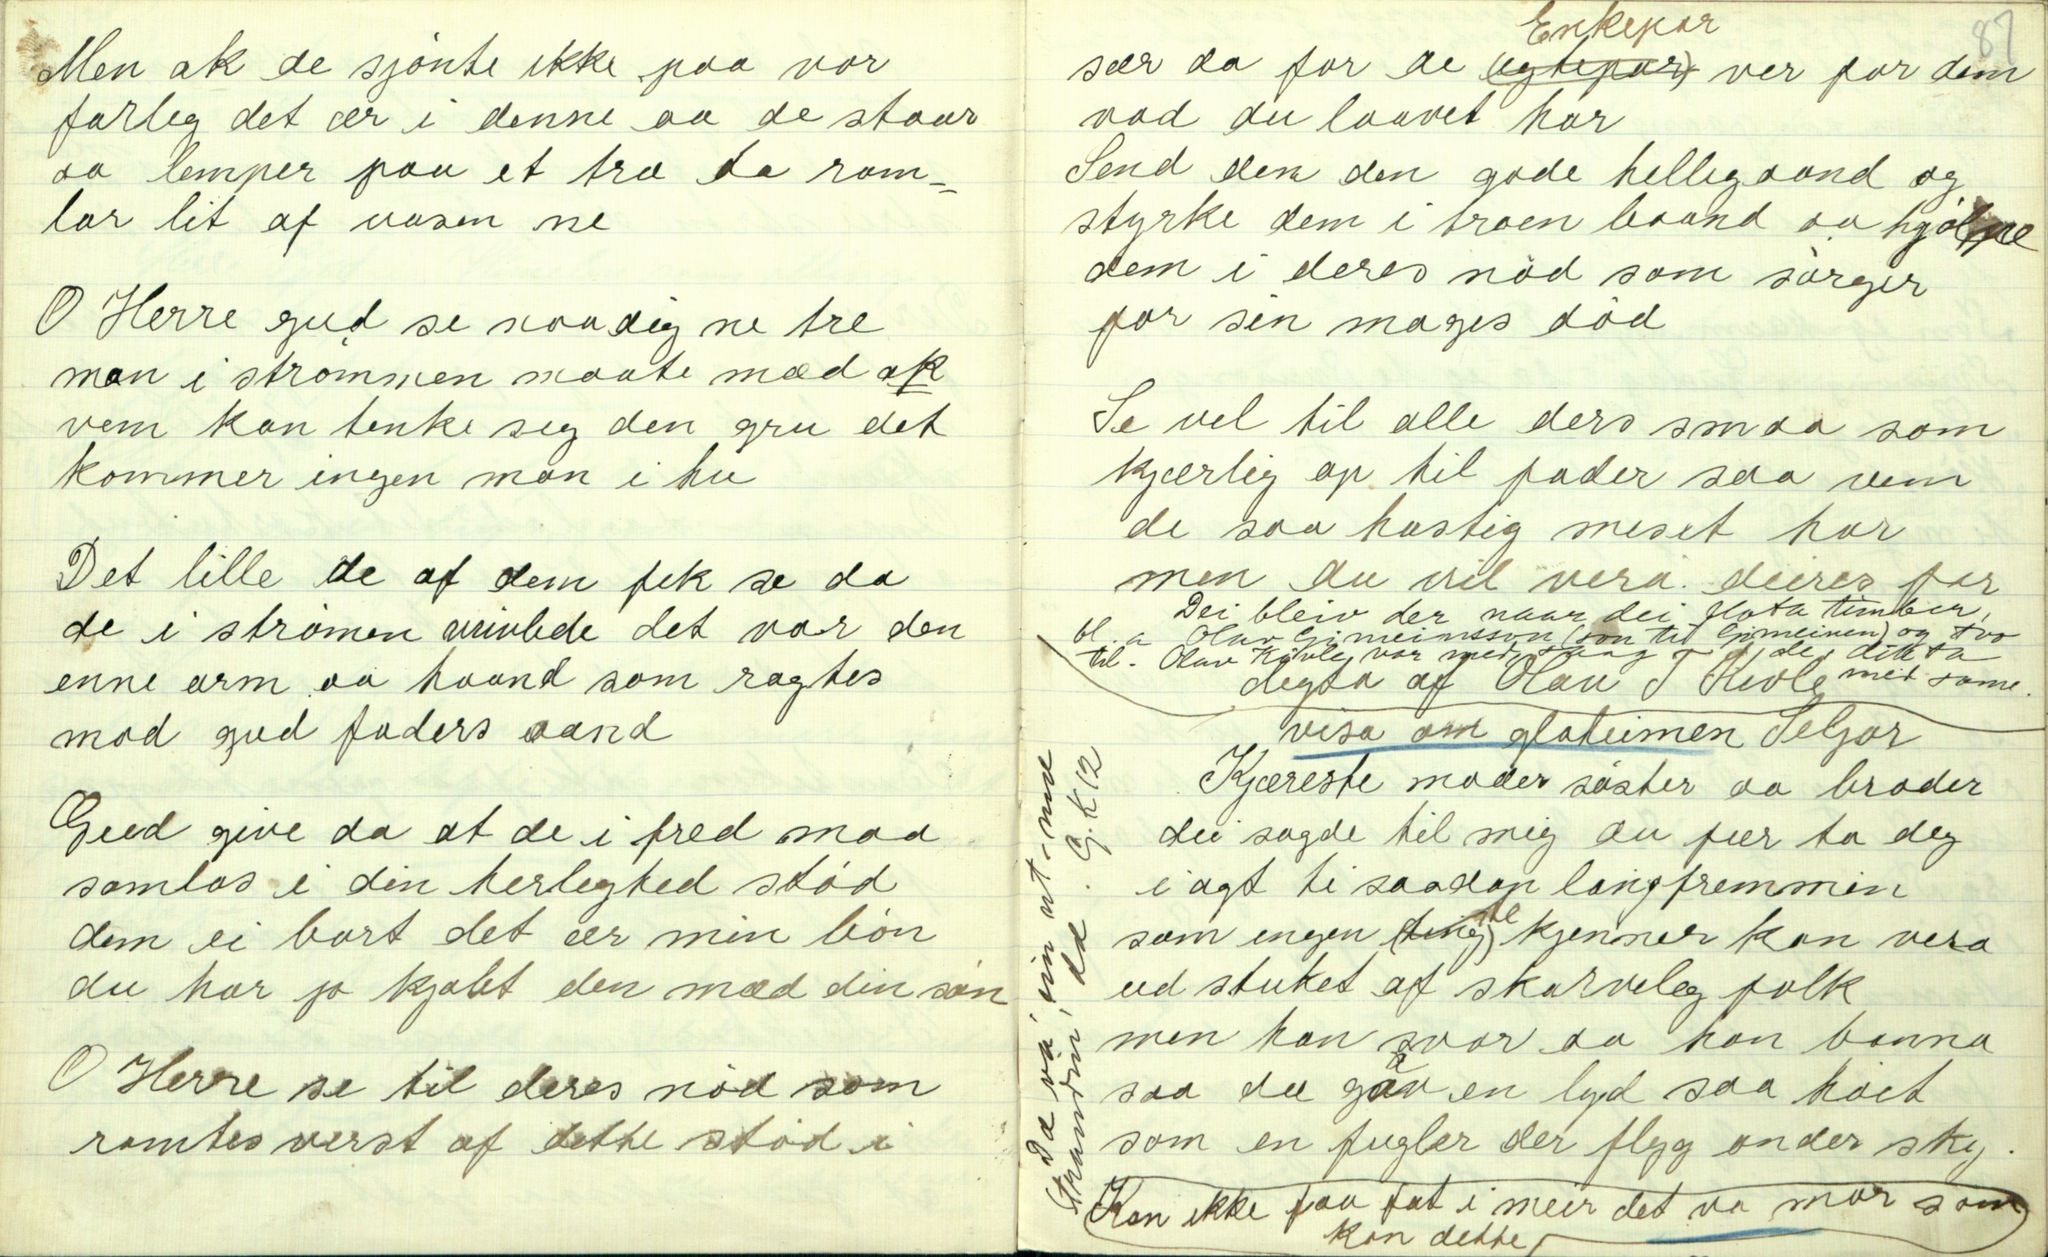 Men ak de sjönte ikke paa vor
farleg det ær i denne aa de staar
aa lemper paa et træ da ram-
lar lit af vasen ne
O Herre gud se naadig ne tre
man i strömmen maate mæd ak
vem kan tenke seg den gru det
kommer ingen man i hu
Det lille de af dem fek se da
de i strömen vrivlede det var den
enne arm aa haand som ragtes
mod gud faders aand
Gud give da at de i fred maa
samlas i din herleghed stöd
dem ei bort det ær min bön
du har jo kjöbt den mæd din sön
O Herre se til deres nöd som
ramtes verst af dette stöd i
87
Enkepar
sær da for de (egtepar) ver for dem
vad du laavet har
Send dem den gode helligaand og
styrke dem i troen baand aa hjölpe
dem i deres nöd som sörger
for sin mages död
Se vel til alle ders smaa som
kjærlig op til fader saa vem
de saa hastig meset har
men du vil vera deires far
Dei bleiv der naar dei flota timber,
bl. a Olav Gjmeinsson (son til Gjmeinen) og tvo
til. Olav Kivle var med, saag de, dikta
degta af Olav T Kivle med same.
visa om glateimen Seljor
Kjæreste moder söster aa broder
dei sagde til mig du fær ta deg
i agt ti saadan langfremmin
som engen (ting) kjenner kan vera
ud stuket af skarveleg folk
men han svor aa han banna
saa du gav en lyd saa höit
som en fugler der flyg onder sky.
Kan ikke faa fat i meir det va mor som
kan dette
Da va' ein ut-me
Strandin, dd. G.K 12